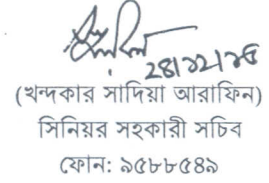 ২৪/১২/১৫
(খন্দকার সাদিয়া আরাফিন)
সিনিয়র সহকারী সচিব
ফোন: ৯৫৮৮৫৪৯